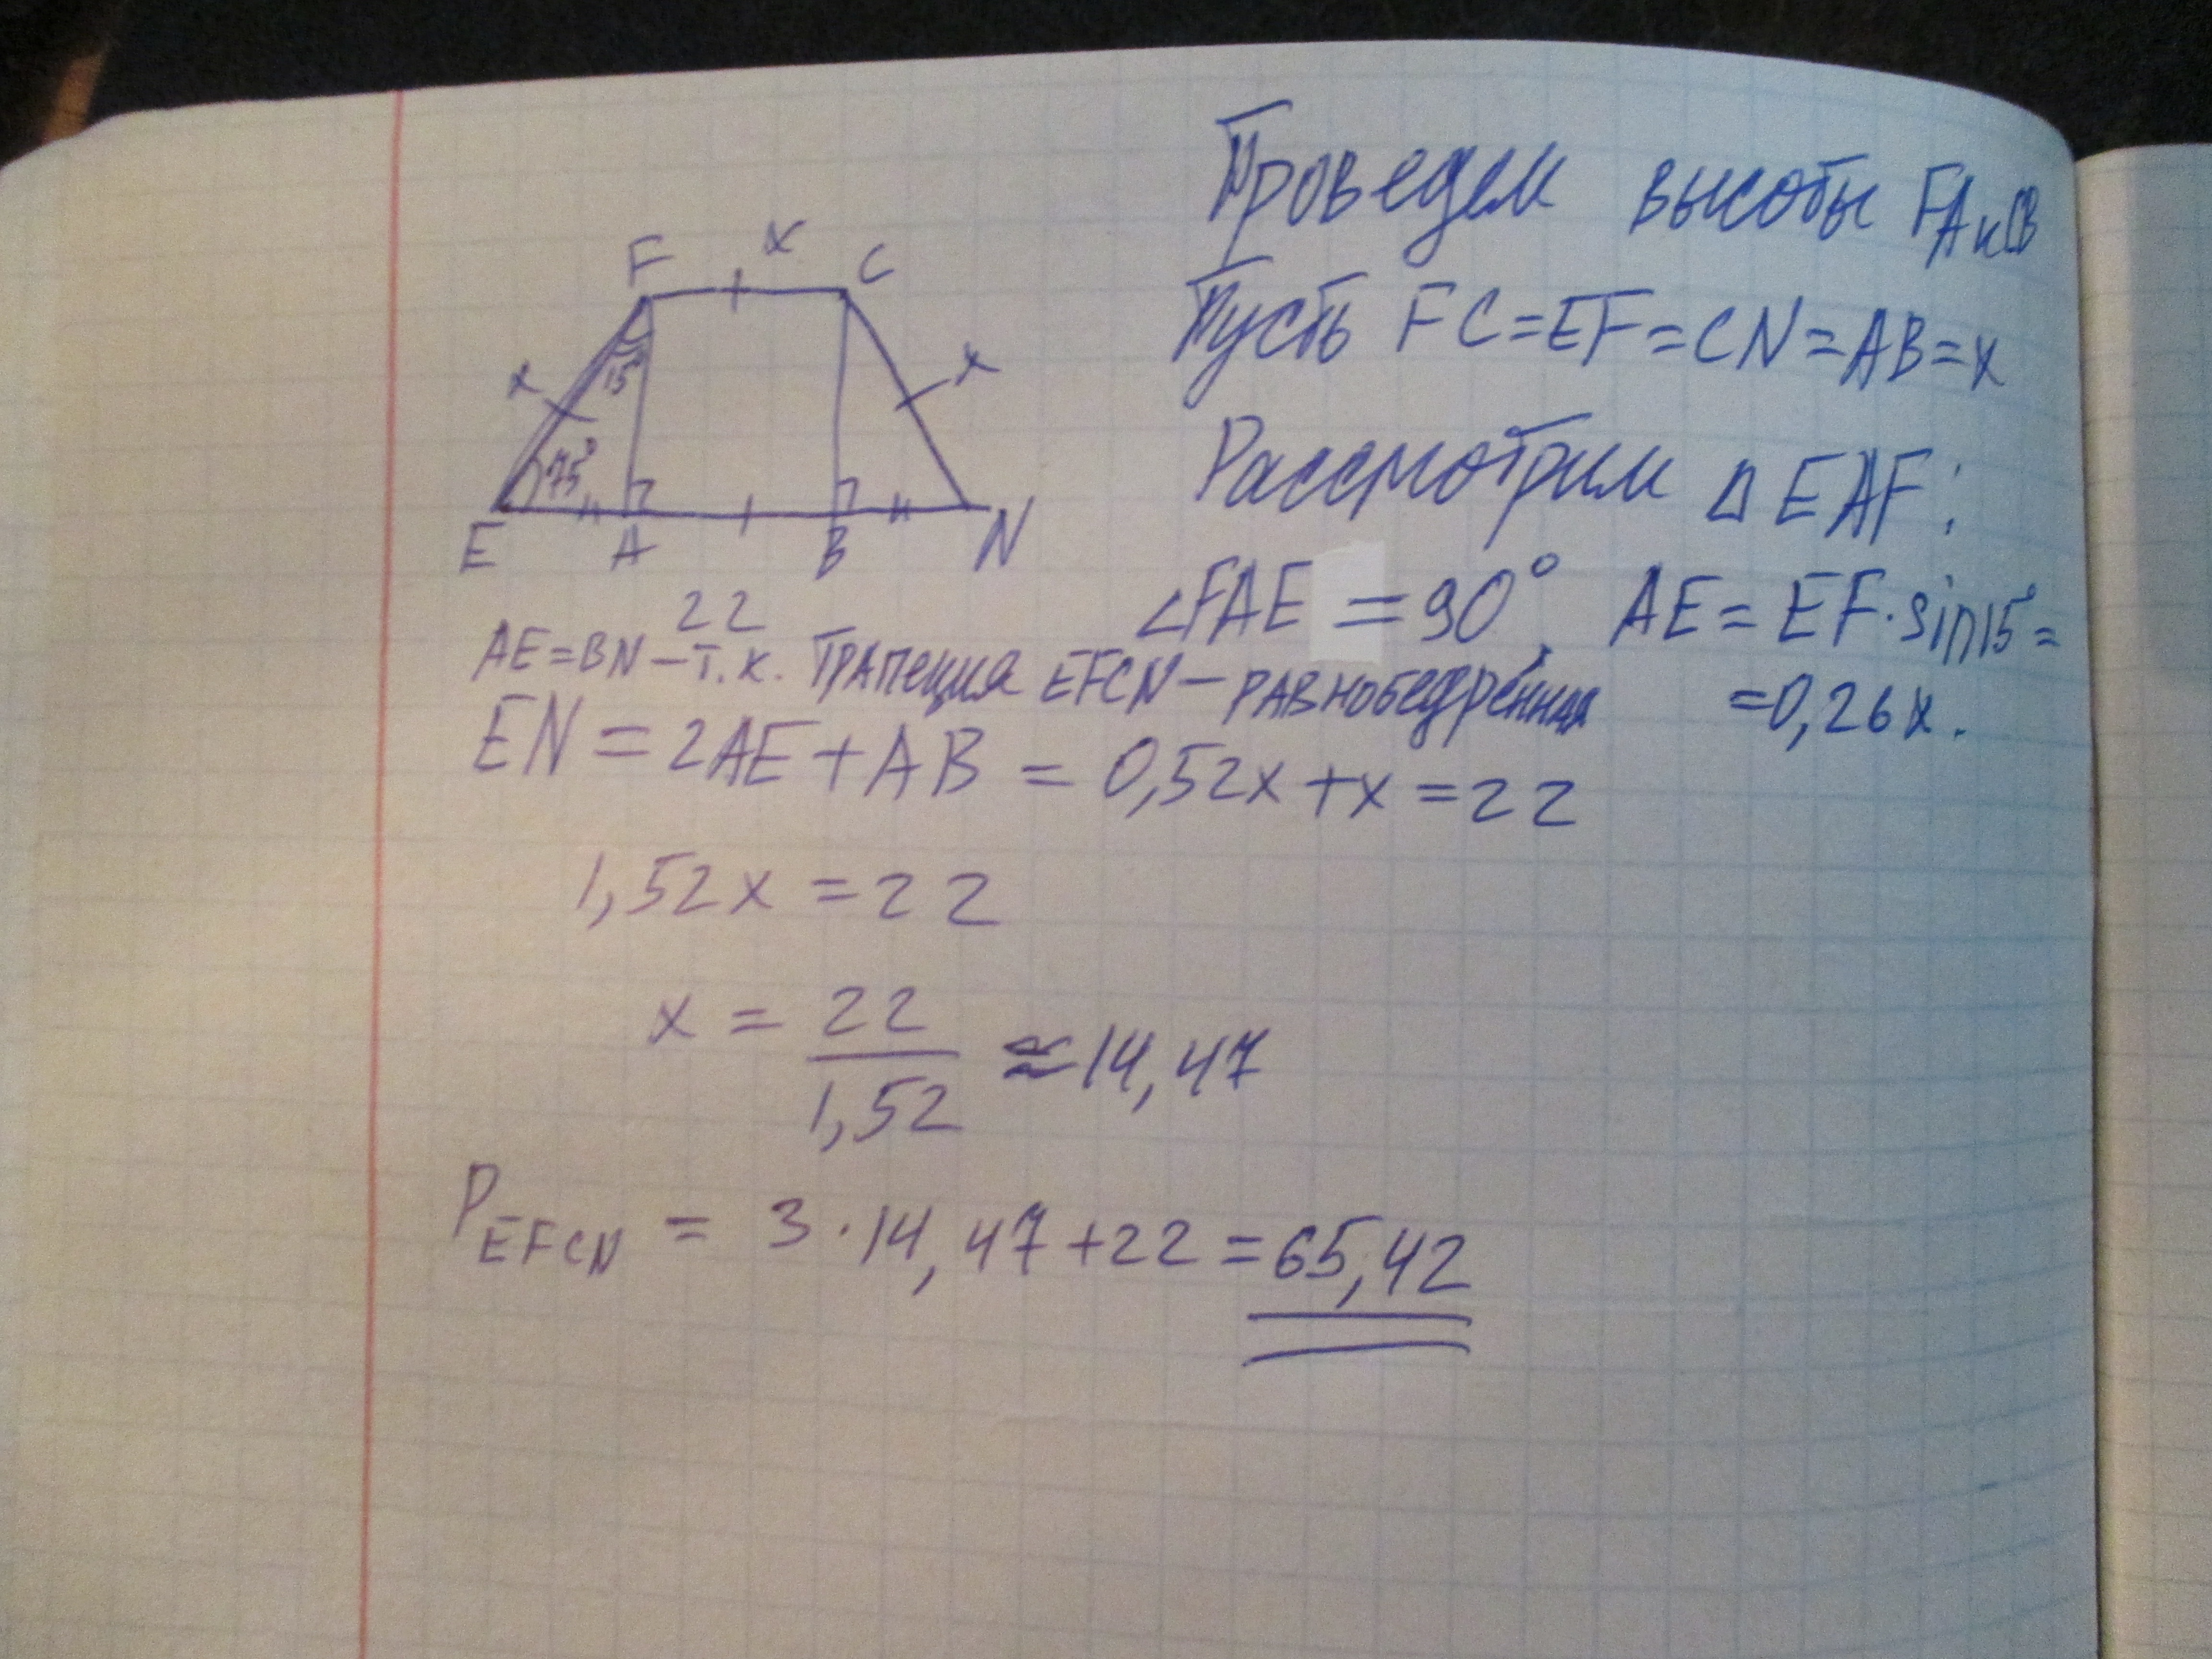 Проведем высоты FA и CB
Пусть FC=EF=CN=AB=x
Рассмотрим △EAF:
∠FAE = 90°, AE = EF·sin15°=
=0,26x.
x
F C
x 15° x
75°
E A B N
22
AE=BN-т.к. трапеция EFCN-равнобедренная
EN=2AE+AB=0,52x+x=22
1,52x=22
x = 22/1,52 ≈14,47
P EFCN = 3·14,47+22=65,42